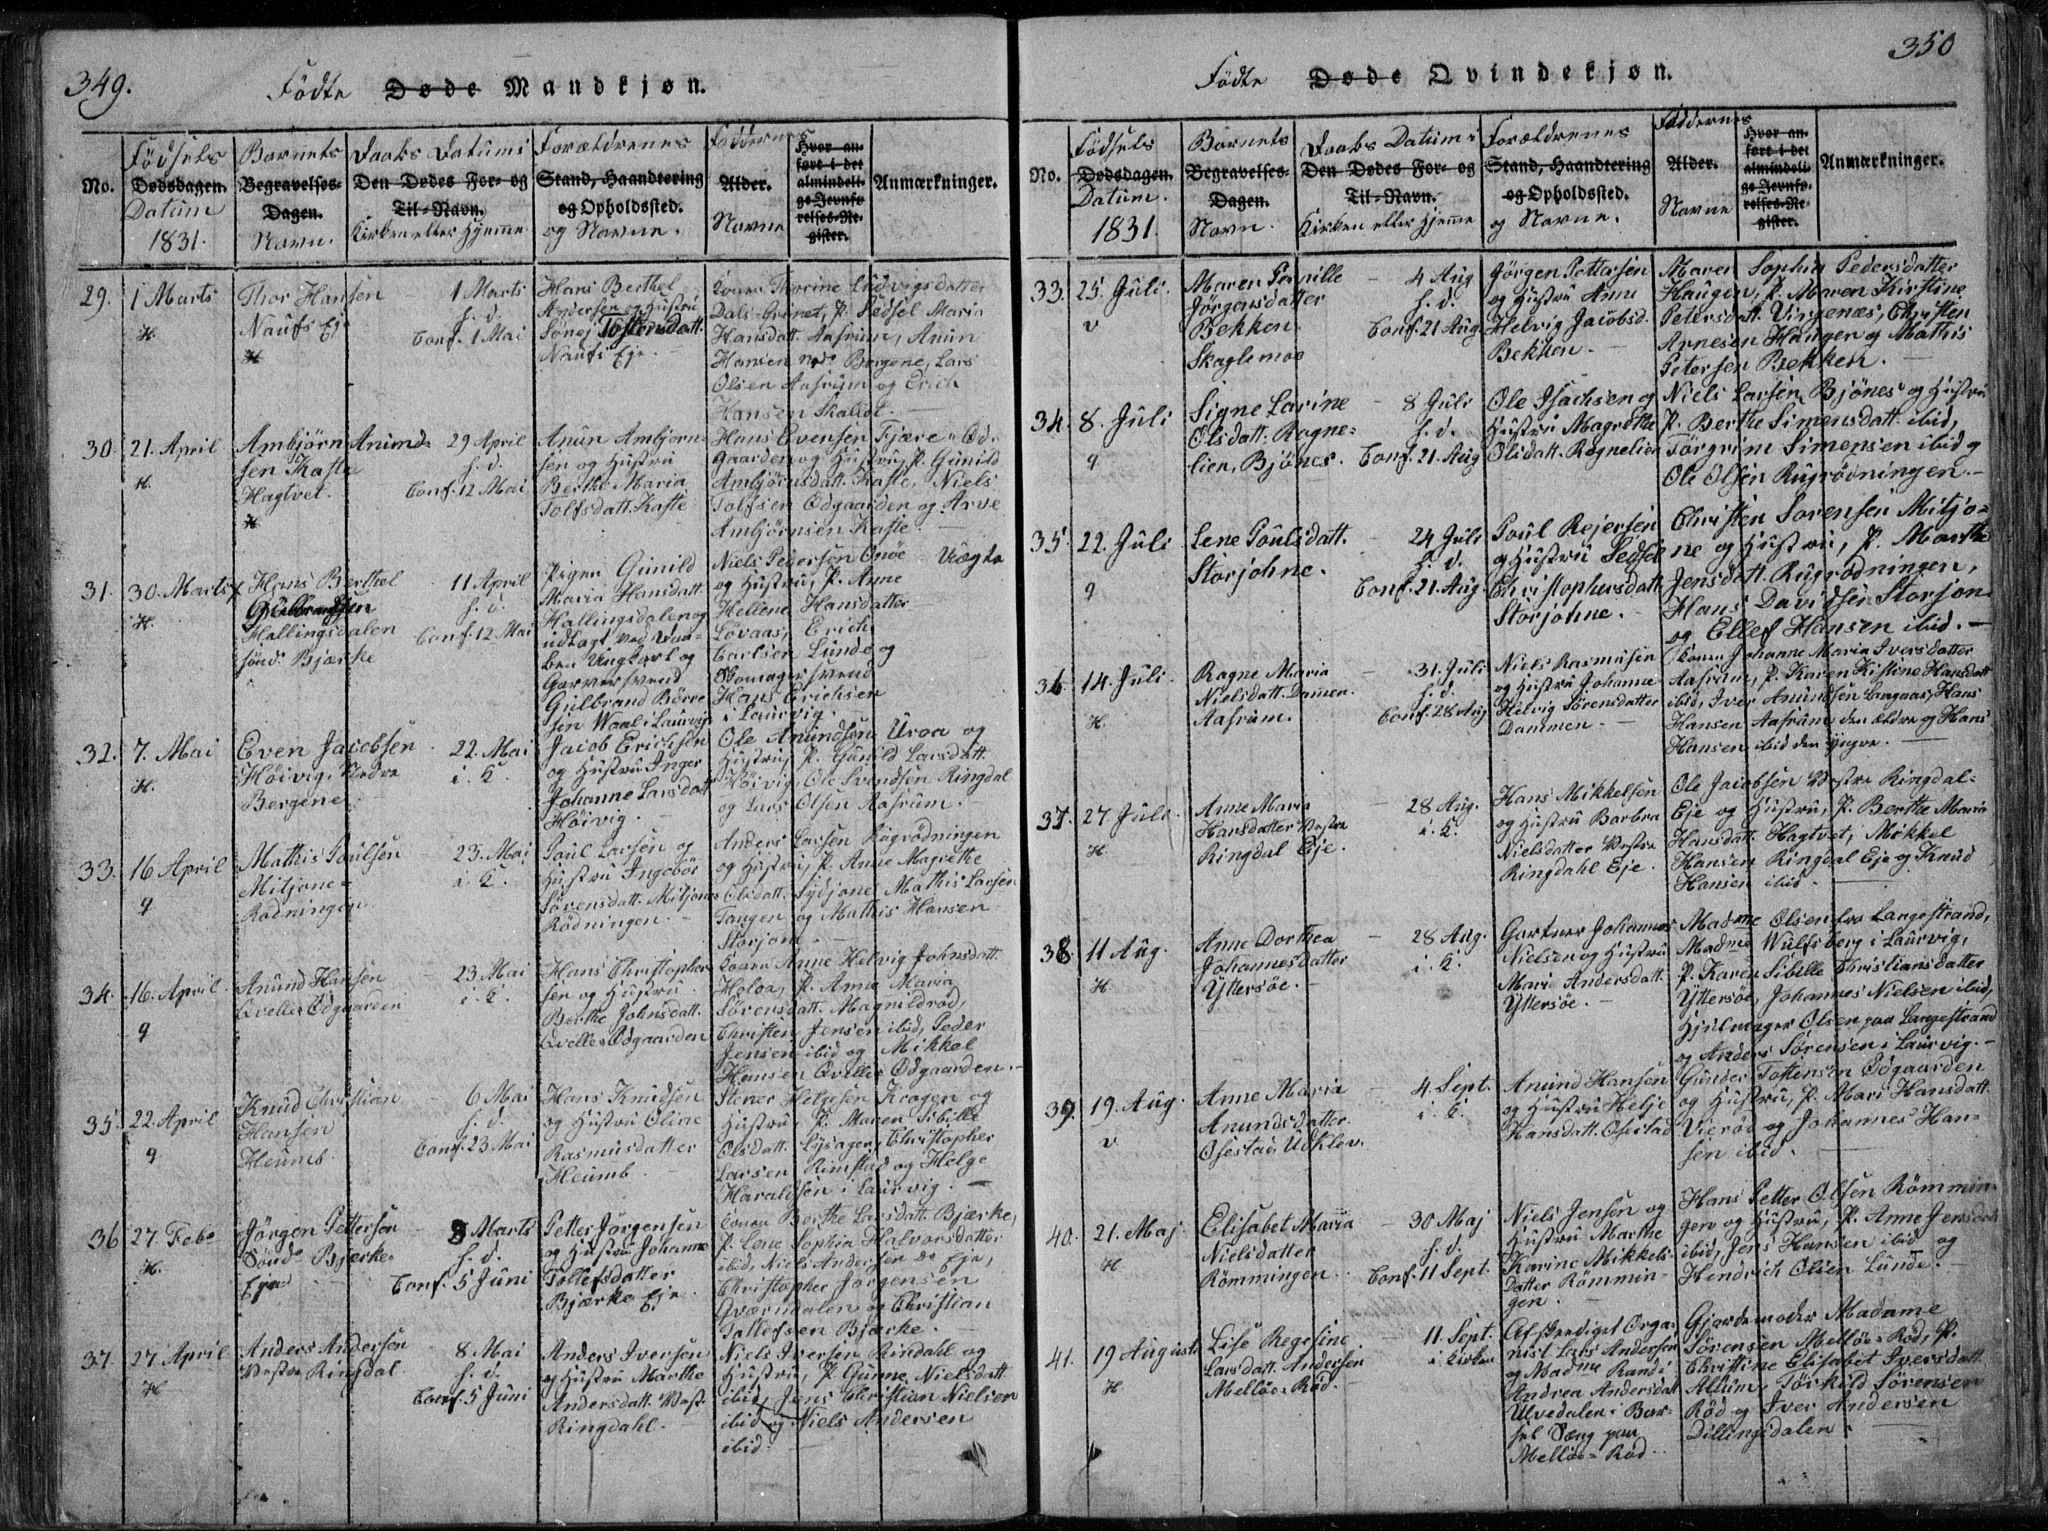 349.
Födte Døde Mandkjøn.
No.
Födsels
Dødsdagen.
Datum
1831.
Barnets
Begravelses-
Dagen.
Navn.
Daabs Datum i
Den Dødes For- og
Til-Navn.
Kirken eller Hjemme
Forældrenes
Stand, Haandtering
og Opholdssted.
og Navne.
Faddernes
Alder.
Navne
Hvor an-
ført i det
almindeli-
ge Jevnfø-
relses-Re-
gister.
Anmærkninger.
29. 1 Marts
H.
Thor Hansen
Naufs Eje
H
1 Marts
h. d.
Conf. 1 Mai
Hans Berthel
Andersen og Hustrü
Tostensdatt.
Naufs Eje.
Konen Thorine Ludvigsdatter
P. Sidsel Maria
Hansdatt. Aasrum, Anun
Hansen Bergene, Lars
Olsen Aasrum og Erich
Hansen Skalldt.
30. 21. April
H.
Ambjörn Anund-
sen Kaste
Hagtvet.
H
29 April
h. d.
Conf. 12 Mai
Anun Ambjörn-
sen og Hustru
Berthe Maria
Tolfsdatt. Kaste
Hans Evensen Tjære Od-
gaarden og Hustru, P. Gunild
Ambjörnsdatt. Kaste, Niels
Tolfsen Odgaarden og Arve
Ambjörnsen Kaste.
31. 30. Marts
H.
Hans Berthel
Gulbrandsen
Hallingsdalen
sönd. Bjærke
11 April
h. d.
Conf. 12 Mai
Pigen Gunild
Maria Hansdatt.
Hallingsdalen og
udlagt ved Daa-
ben Ungkarl og
Garversvend
Gulbrand Börre-
sen Waal i Laurvig
Niels Pedersen Onöe
og Hustru, P. Anne
Hellene Hansdatter
Løvaas, Erich
Carlsen Lunde og
Skomagersvend
Hans Erichsen
i Laurvig.
Uægte
32. 7. Mai
H.
Even Jacobsen
Höivig, Nedre
Bergene
22. Mai
i. K.
Jacob Erichsen
og Hustru Inger
Johanne Larsdatt.
Höivig.
Ole Anundsen Uroa og
Hustru, P. Gunild Larsdatt.
Höivig, Ole Svendsen Ringdal
og Lars Olsen Aasrum.
33. 16 April
q
Mathis Poulsen
Mitjone-
Rødningen
23. Mai
i. K.
Poul Larsen og
Hustru Ingebör
Sörensdatt. Mitjone
Rödningen.
Anders Larsen Rugrödningen
og Hustru, P. Anne Magrethe
Olsdatt. Sydjone, Mathis Larsen
Tangen og Mathis Hansen
Storjone.
34. 16. April
q
Anund Hansen
Kvelles Odgaarden
23. Mai
i. K.
Hans Christopher-
sen og Hustru
Berthe Johnsdatt.
Qvelles Odgaarden
Konen Anne Helvig Johnsdatt.
Holoa, P. Anne Maria
Sörensdatt. Magnildröd,
Christen Jensen ibid, Peder
Jensen ibid og Mikkel
Hansen Qvelles Odgaarden.
35. 22. April
q
Knud Christian
Hansen
Heumb.
6 Mai
h. d.
Conf. 23 Mai
Hans Knudsen
og Hustru Oline
Rasmusdatter
Heumb.
Stener Helgesen Kragen og
Hustru, P. Maren Sibille
Olsdatt. Lysagen, Christopher
Larsen Rimstad og Helge
Haraldsen i Laurvig.
36 27. Feb.
H.
Jörgen Pettersen
Sönd. Bjærke-
Eje
3 Marts
h. d.
Conf. 5 Juni
Petter Jörgensen
og Hustru Johanne
Tollefsdatter
Bjærke Eje.
Konen Berthe Larsdatt. Bjærke,
P. Lene Sophia Halvorsdatter
ibid, Niels Andersen do Eje,
Christopher Jørgensen
Qværndalen og Christian
Tollefsen Bjærke.
37. 27 April
H
Anders Andersen
Vestre Ringdal
8 Mai
h. d.
Conf. 5 Juni
Anders Iversen
og Hustru Marthe
Andersdatt. Vest-
Ringdahl.
Niels Iversen Rindahl og
Hustru, P. Gunne Nielsdatt.
ibid, Jens Christian Nielsen
ibid og Niels Andersen
ibid.
350
Födte Døde Qvindekjøn.
No.
Födsels
Dødsdagen.
Datum.
1831.
Barnets
Begravelses-
Dagen.
Navn.
Daabs Datum i
Den Dødes For- og
Til-Navn.
Kirken eller Hjemme
Forældrenes
Stand, Haandtering
og Opholdssted.
og Navne.
Faddernes
Alder.
Navne
Hvor an-
ført i det
almindeli-
ge Jevnfø-
relses-Re-
gister.
Anmærkninger.
33. 25. Juli.
v
Maren Pernille
Jörgensdatter
Bekken
Skaglemoe
4 Aug
h. d.
Conf. 21 Aug
Jörgen Pettersen
og Hustru Anne
Helvig Jacobsd.
Bekken.
Maren Sophia Pedersdatter
Haugen, P. Maren Kirstine
Petersdatt. Virgenæs, Christen
Arnesen Haugen og Mathis
Petersen Bekken.
34. 8. Juli
q
Signe Larine
Olsdatt. Rogne-
lien, Bjönes.
8 Juli
h. d.
Conf. 21 Aug
Ole Isachsen og
Hustru Magrethe
Olsdatt. Rognelien
Niels Larsen Bjönes og Hustru
P. Berthe Simensdatt. ibid,
Törgrim Simensen ibid og
Ole Olsen Rugrödningen.
35. 22. Juli
q
Lene Poulsdatt.
Storjohne.
24 Juli
h. d.
Conf. 21 Aug.
Poul Rejersen
og Hustru Sedsel
Christophersdatt.
Storjohne.
Christen Sorensen Mitjo-
ne og Hustru, P. Marthe
Jensdatt. Rugrødningen,
Hans Davidsen Storjone
og Ellef Hansen ibid.
36. 14. Juli.
H.
Ragne Maria
Nielsdatt. Damen
Aasrum.
31. Juli
h. d.
Conf. 28 Aug
Niels Rasmusen
og Hustru Johanne
Helvig Sörensdatter
Dammen.
Konen Johanne Maria Iversdatter
Aasrum, P. Karen Kistine Hansdatt
ibid, Iver Anundsen Langaas, Hans
Hansen Aasrum den ældre og Hans
Hansen ibid den yngre.
37. 27 Juli.
H.
Anne Maria
Hansdatter Vestre
Ringdal Eje.
28 Aug.
i. K.
Hans Mikkelsen
og Hustru Barbra
Nielsdatter Vestre
Ringdahl Eje.
Ole Jacobsen Vestre Ringdal-
Eje og Hustru, P. Berthe Maria
Hansdatt. Hagtvet, Mikkel
Hansen Ringdal Eje og Knud
Hansen ibid.
38. 11 Aug.
H
Anne Dorthea
Johannesdatter
Yttersöe.
28 Aug.
i. K.
Gartner Johannes
Nielsen og Hustru
Mari Andersdatt.
Yttersöe.
Madme Olsen fra Langestrand,
Madme Wulfsberg i Laurvig,
P. Karen Sibille Christiansdatter
Yttersöe, Johannes Nielsen ibid,
Hjulmager Olsen paa Langestrand
og Anders Sörensen i Laurvig.
39. 19. Aug.
v
Anne Maria
Anundsdatter
Osestad Udklev
4 Sept.
i. K.
Anund Hansen
og Hustru Helje
Hansdatt. Osestad
Gunder Tostensen Odgaarden
og Hustru, P. Mari Hansdatt.
Vieröd og Johannes Han-
sen ibid.
40. 21. Maj
H
Elisabet Maria
Nielsdatter
Römmingen.
30 Maj
h. d.
Conf. 11 Sept.
Niels Jensen og
Hustru Marthe
Karine Mikkels-
Datter Römmin-
gen.
Hans Petter Olsen Römmin-
gen og Hustru, P. Anne Jensdatt
ibid, Jens Hansen ibid og
Hendrich Olsen Lunde.
41. 19 August
H
Lise Regesine
Larsdatt. Andersen
Mellöe-Röd.
11. Sept.
i. Kirken
Afskediget Orga-
nist Lars Andersen
og Madme Randi
Andrea Andersdatt
Ulvedalen i Bar-
sel Sæng paa
Mellöe-Röd.
Gjordemoder Madame
Sörensen Mellöe-Röd, P.
Christine Elisabet Iversdatt.
Allum, Törkild Sörensen
Röd og Iver Andersen
Dillingsdalen.